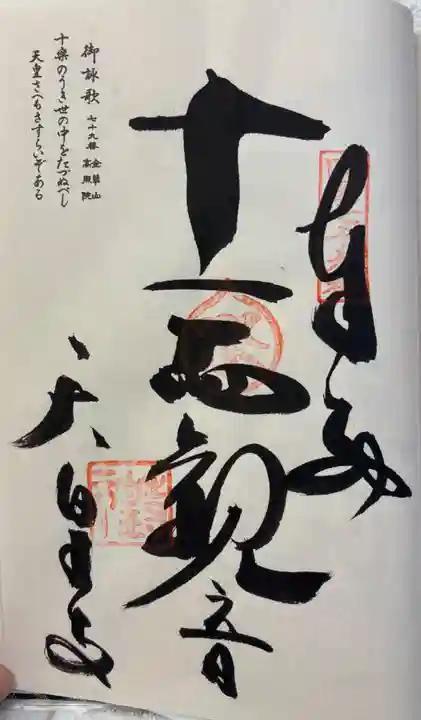 奉納
十一面観音
天皇寺
御詠歌 七十九番 金華山 高照院
十楽のうき世の中をたづぬべし
天皇さへもさすらいぞある